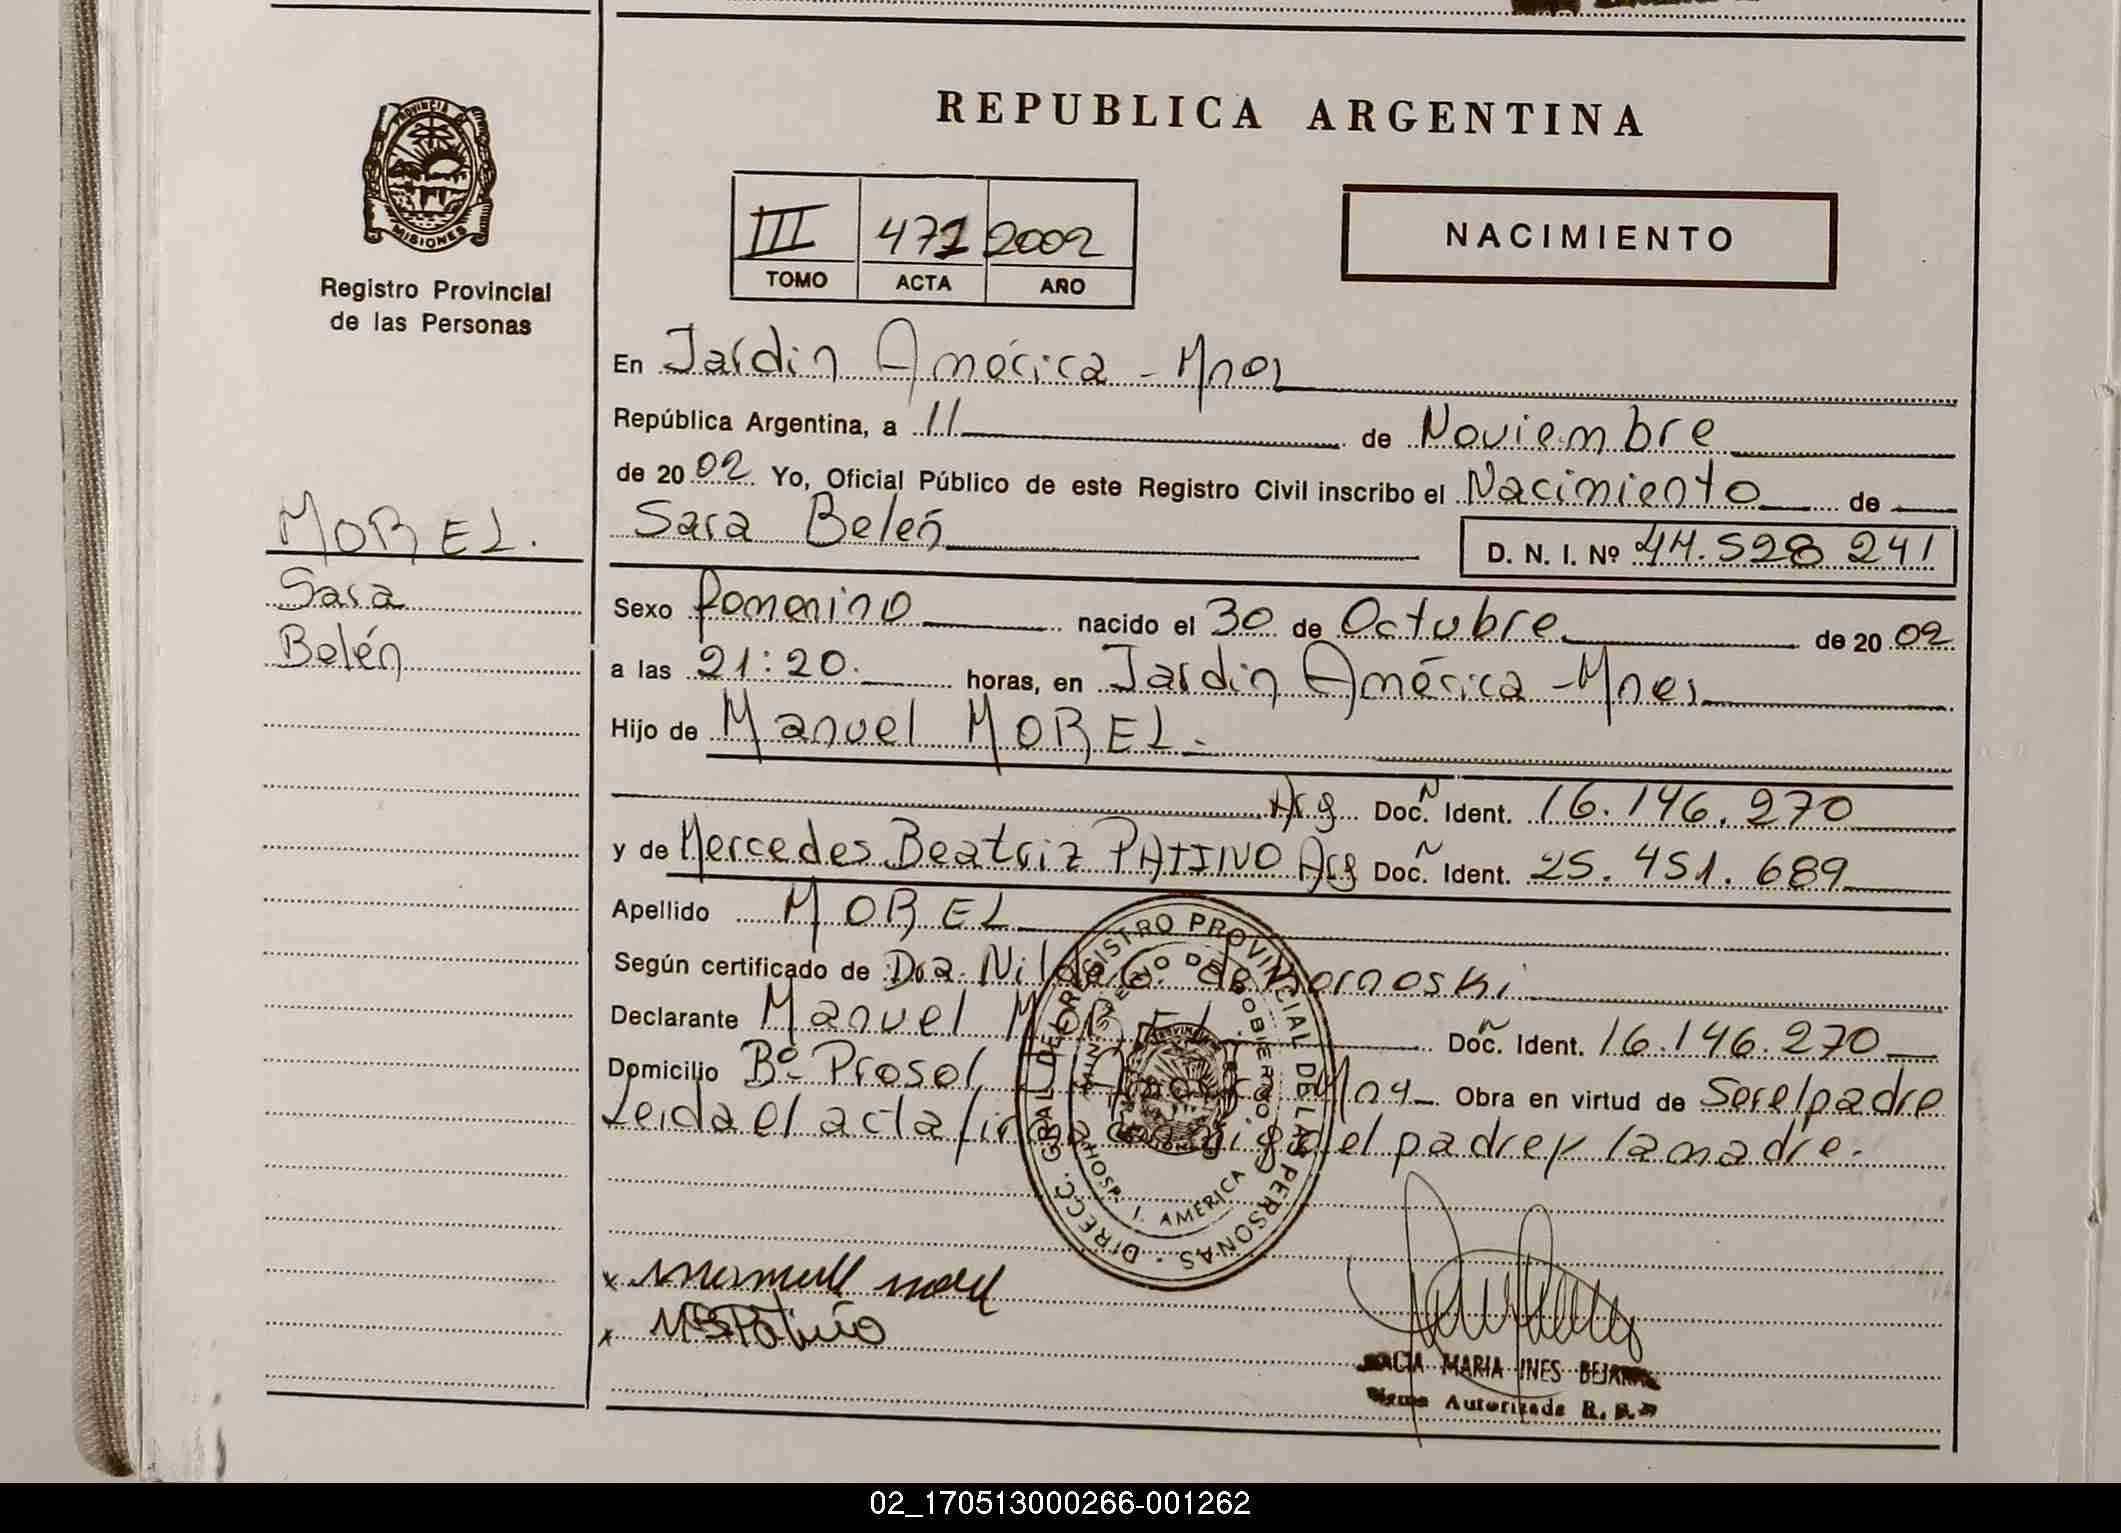 REPUBLICA ARGENTINA
PROVINCIA DE
MISIONES
Registro Provincial
de las Personas
III 471 2002
TOMO ACTA AÑO
NACIMIENTO
En Jardin América - Mnes
República Argentina, a 11 de Noviembre
de 2002 Yo, Oficial Público de este Registro Civil inscribo el Nacimiento de
Sara Belén D. N. I. Nº 44.528 241
MOREL.
Sara
Belén
Sexo femenino nacido el 30 de Octubre de 2002
a las 21:20. horas, en Jardin América - Mnes
Hijo de Manuel MOREL.-
Arg Doc. Ident. 16.146.270
y de Mercedes Beatriz PATIÑO Arg Doc. Ident. 25.451.689
Apellido MOREL
Según certificado de Dra. de Kornoski
Declarante Manuel MOREL Doc. Ident. 16.146.270
Domicilio Bº Prosol, Obra en virtud de Ser el padre
Leida el acta el padre y la madre.
DIRECC. GRAL. DEL REGISTRO PROVINCIAL DE LAS PERSONAS
MINISTERIO DE GOBIERNO
HOSP. J. AMERICA
MBPatiño
MARIA INES
Autorizada R. P.
02_170513000266-001262